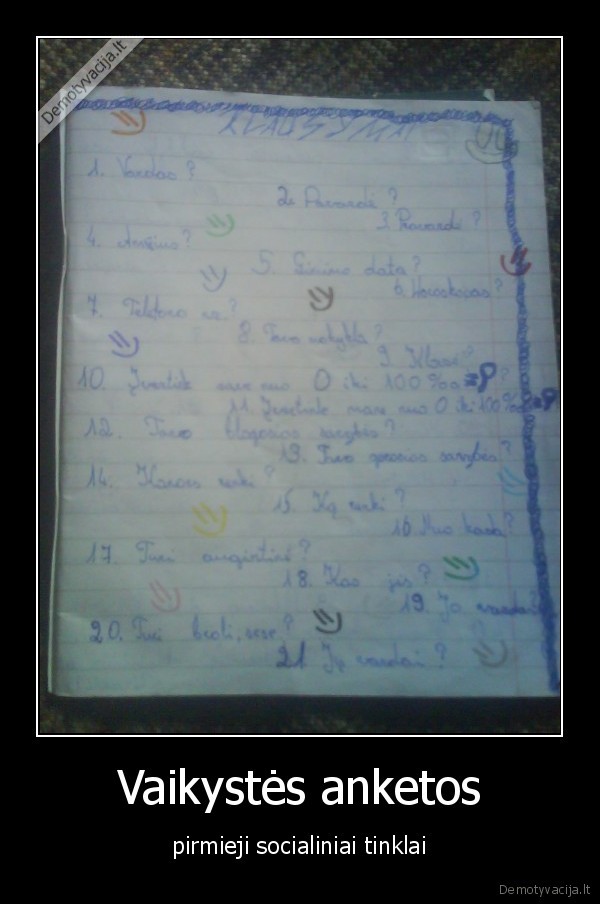 Demotyvacija.lt
KLAUSYMAI
1. Vardas?
2. Pavardė?
3. Pravardė?
4. Amžius?
5. Gimimo data?
6. Horoskopas?
7. Telefono nr.?
8. Tavo mokykla?
9. Klasė?
10. Įvertink save nuo 0 iki 100% =?
11. Įvertink mane nuo 0 iki 100% =?
12. Tavo blogosios savybės?
13. Tavo gerosios savybės?
14. Karoes renki?
15. Ką renki?
16. Nuo kada?
17. Turi augintinė?
18. Kas jis?
19. Jo vardas?
20. Turi brolį, sesę?
21 Jų vardai?
Vaikystės anketos
pirmieji socialiniai tinklai
Demotyvacija.lt